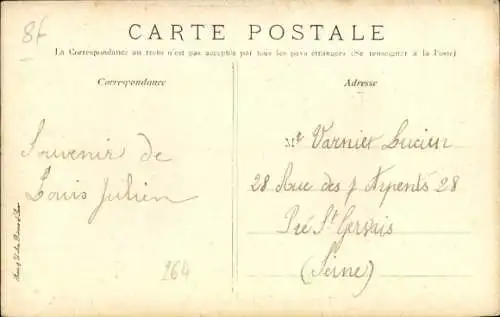 8f
CARTE POSTALE
La Correspondance au recto n'est pas acceptée par tous les pays étrangers (Se renseigner à la Poste)
Correspondance
Adresse
Souvenir de
Louis Julien
Mr Varnier Lucien
28 Rue des 7 Arpents 28
Pré St Gervais
(Seine)
264